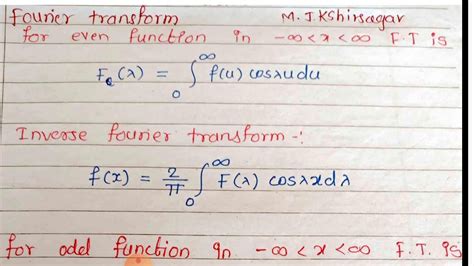 Fourier transform M.J Kshirsagar
for even function in -∞ < x < ∞ F.T is
Fc(λ) = ∫₀^∞ f(u) cosλu du
Inverse fourier transform -:
f(x) = 2/π ∫₀^∞ F(λ) cosλx dλ
for odd function in -∞ < x < ∞ F.T. is